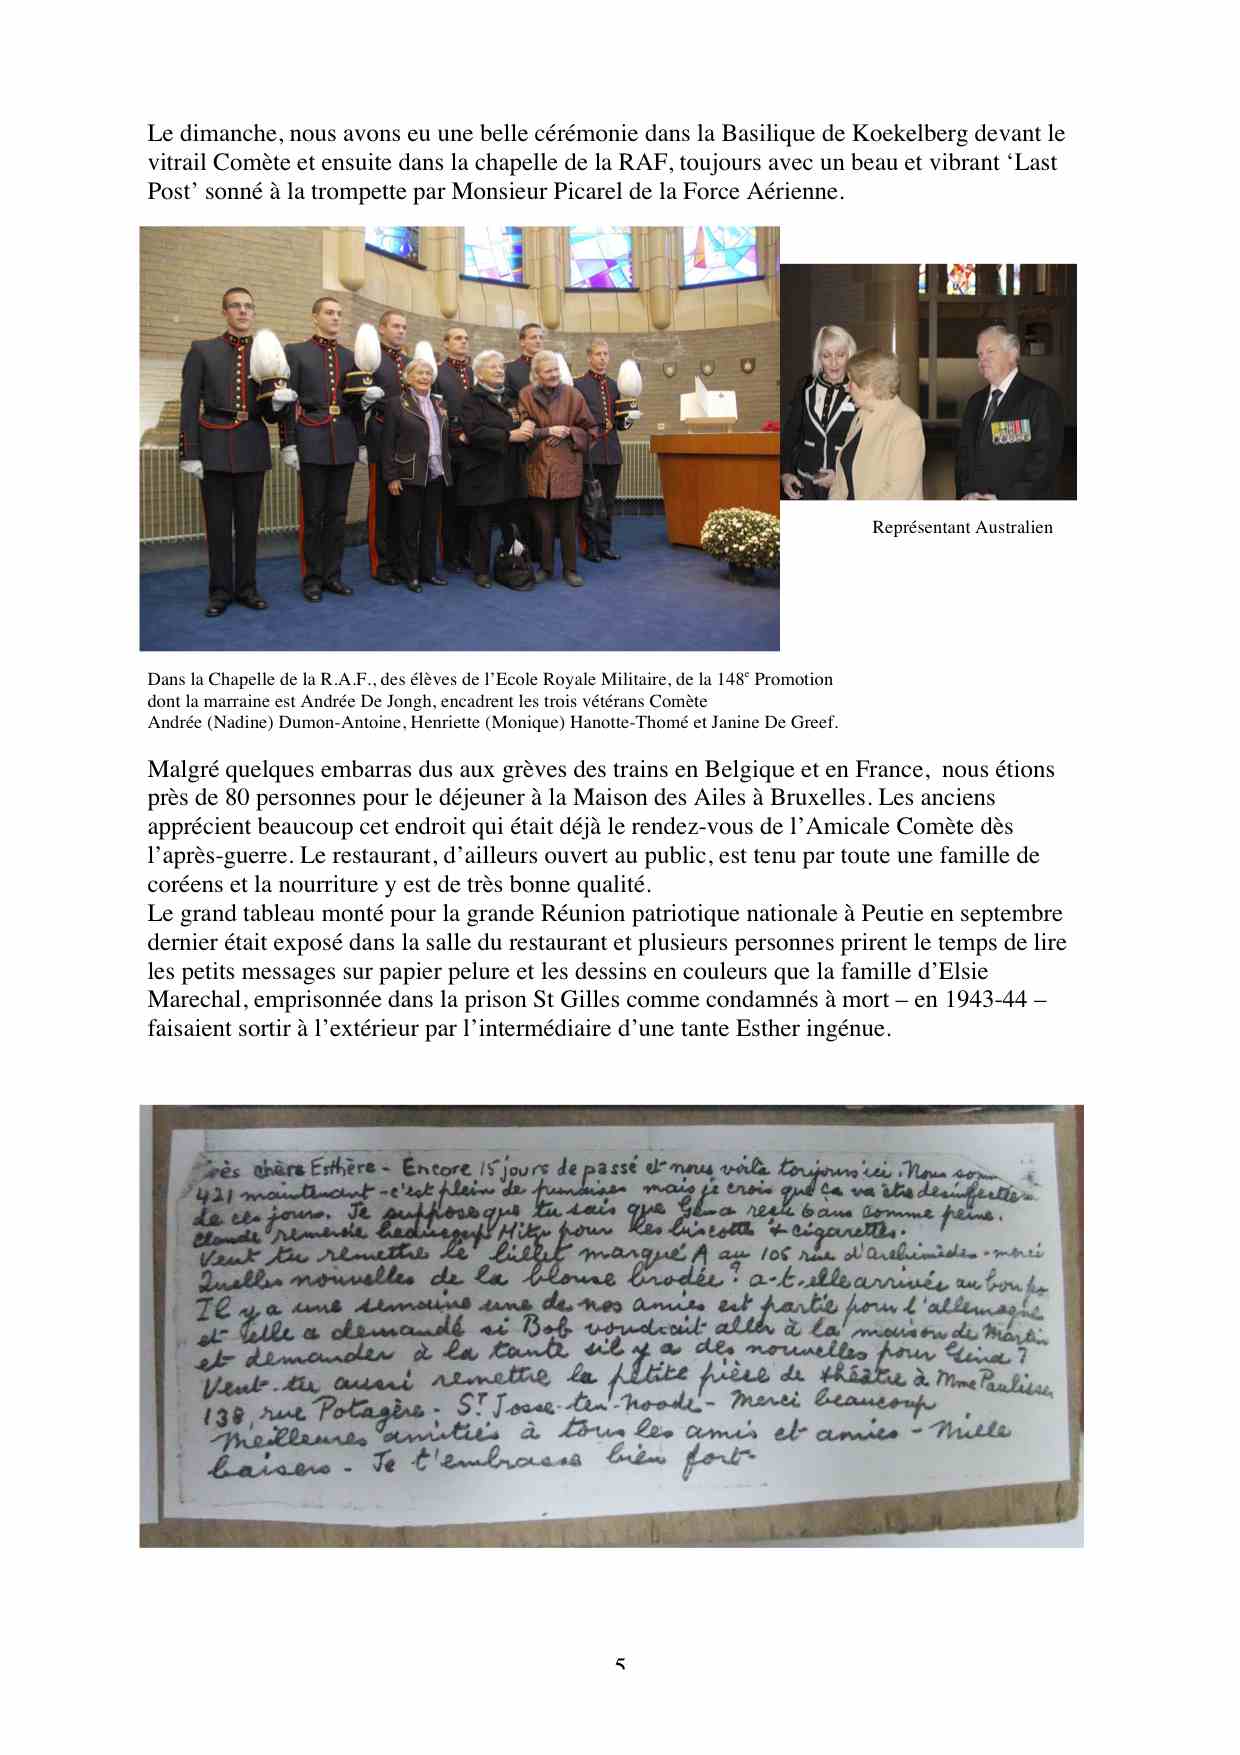 Le dimanche, nous avons eu une belle cérémonie dans la Basilique de Koekelberg devant le
vitrail Comète et ensuite dans la chapelle de la RAF, toujours avec un beau et vibrant ‘Last
Post’ sonné à la trompette par Monsieur Picarel de la Force Aérienne.
Représentant Australien
Dans la Chapelle de la R.A.F., des élèves de l’Ecole Royale Militaire, de la 148e Promotion
dont la marraine est Andrée De Jongh, encadrent les trois vétérans Comète
Andrée (Nadine) Dumon-Antoine, Henriette (Monique) Hanotte-Thomé et Janine De Greef.
Malgré quelques embarras dus aux grèves des trains en Belgique et en France,  nous étions
près de 80 personnes pour le déjeuner à la Maison des Ailes à Bruxelles. Les anciens
apprécient beaucoup cet endroit qui était déjà le rendez-vous de l’Amicale Comète dès
l’après-guerre. Le restaurant, d’ailleurs ouvert au public, est tenu par toute une famille de
coréens et la nourriture y est de très bonne qualité.
Le grand tableau monté pour la grande Réunion patriotique nationale à Peutie en septembre
dernier était exposé dans la salle du restaurant et plusieurs personnes prirent le temps de lire
les petits messages sur papier pelure et les dessins en couleurs que la famille d’Elsie
Marechal, emprisonnée dans la prison St Gilles comme condamnés à mort – en 1943-44 –
faisaient sortir à l’extérieur par l’intermédiaire d’une tante Esther ingénue.
chère Esthère - Encore 15 jours de passé et nous voilà toujours ici. Nous
421 maintenant - c'est plein de punaises mais je crois que ça va être
de ces jours. Je suppose que tu sais que Gina reçu 6 ans comme peine.
Claude remercie beaucoup pour les biscotts & cigarettes.
Veut tu remettre le billet marqué A au 105 rue d'Archimède - merci
Quelles nouvelles de la blouse brodée? a-t-elle arrivée au
Il y a une semaine une de nos amies est partie pour l'allemagne
et elle a demandé si Bob voudrait aller à la maison de Martin
et demander à la tante s'il y a des nouvelles pour Gina?
Veut-tu aussi remettre la petite pièce de théâtre à Mme
138, rue Potagère - St Josse-ten-Noode - Merci beaucoup
Meilleures amitiés à tous les amis et amies - Mille
baisers - Je t'embrasse bien fort-
5